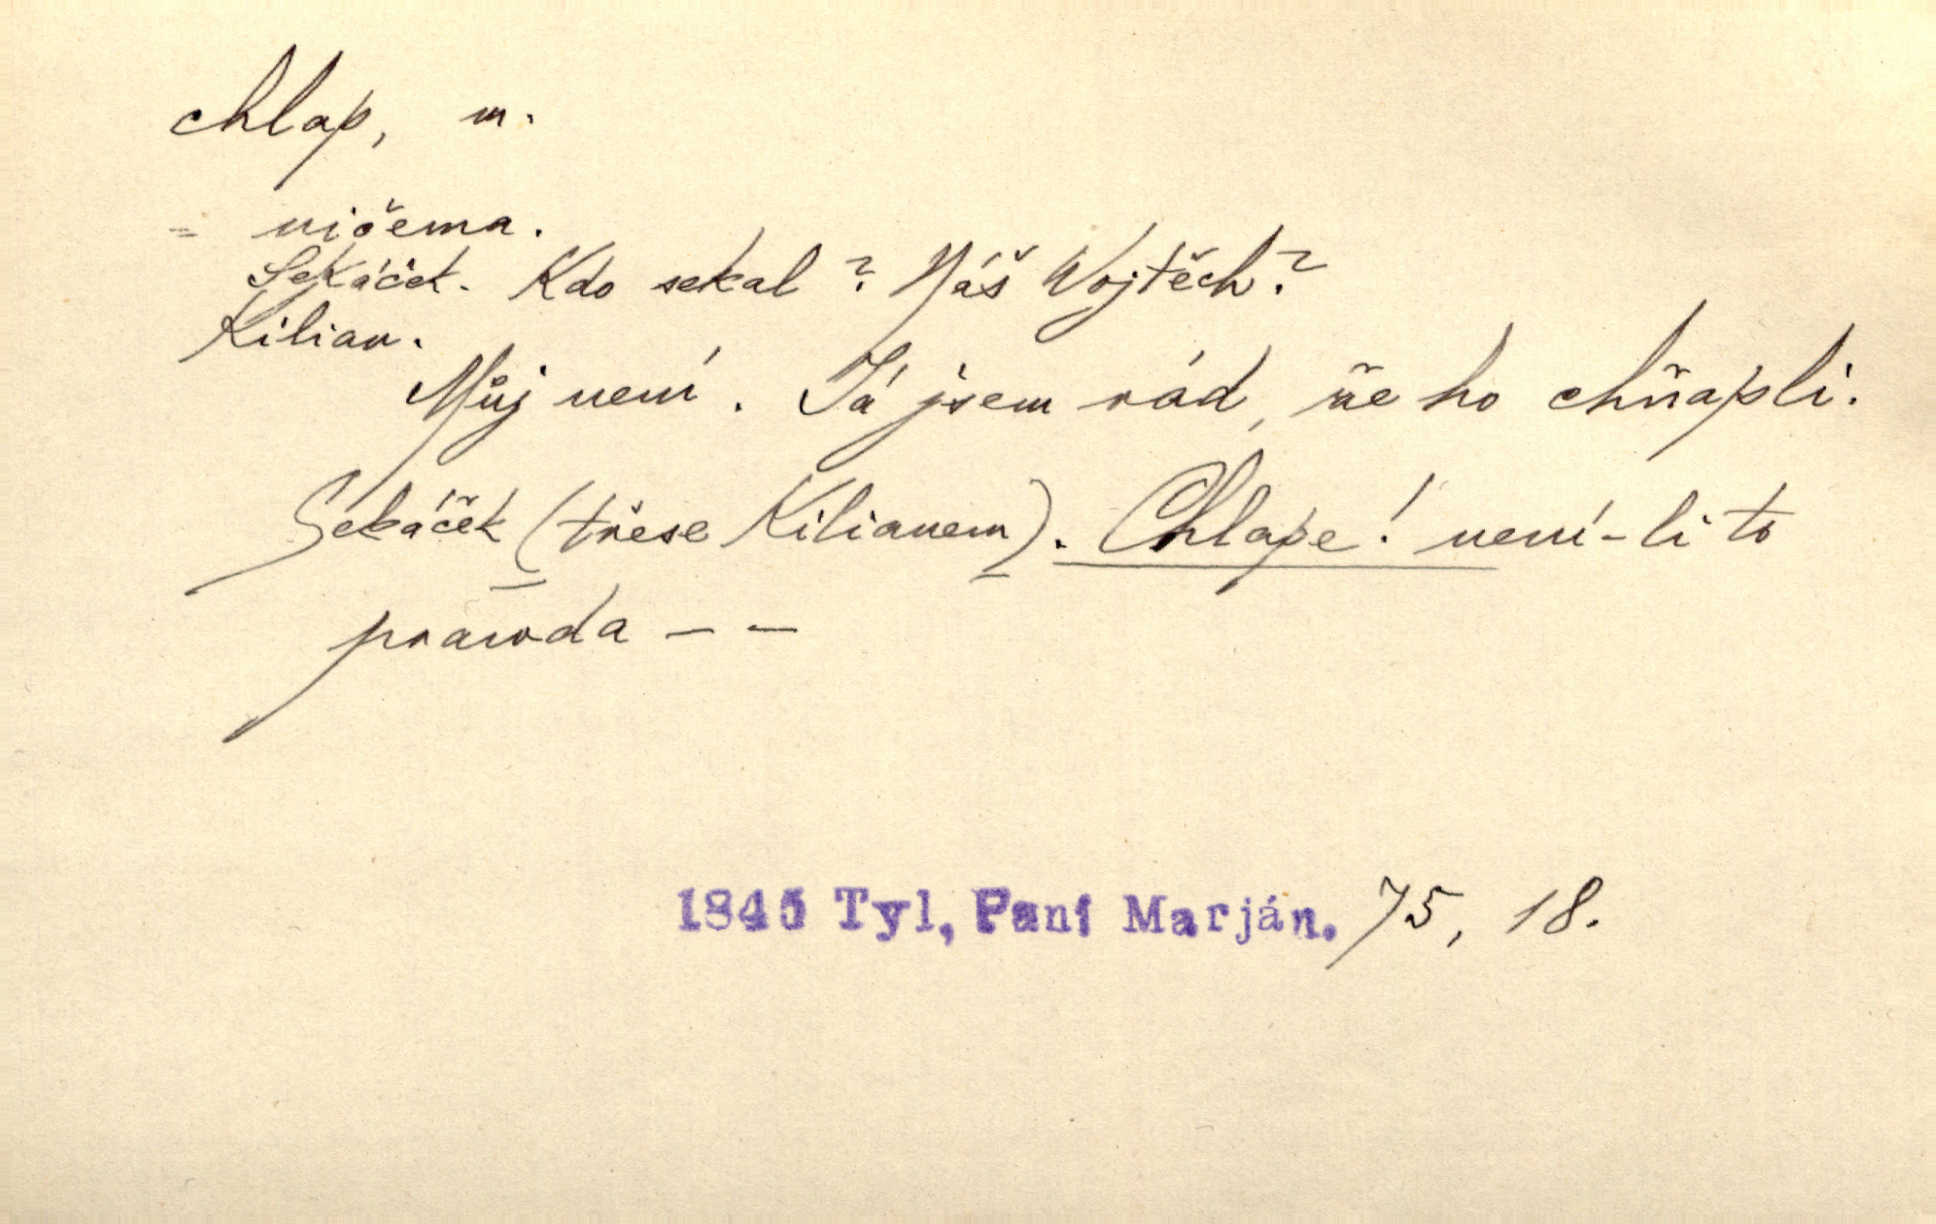 chlap, m.
= ničema.
Sekáček. Kdo sekal? Náš Wojtěch?
Kilian.
Můj není. Já jsem rád, že ho chňapli.
Sekáček (třese Kilianem). Chlape! není-li to
prawda – –
1845 Tyl, Paní Marján. 75, 18.